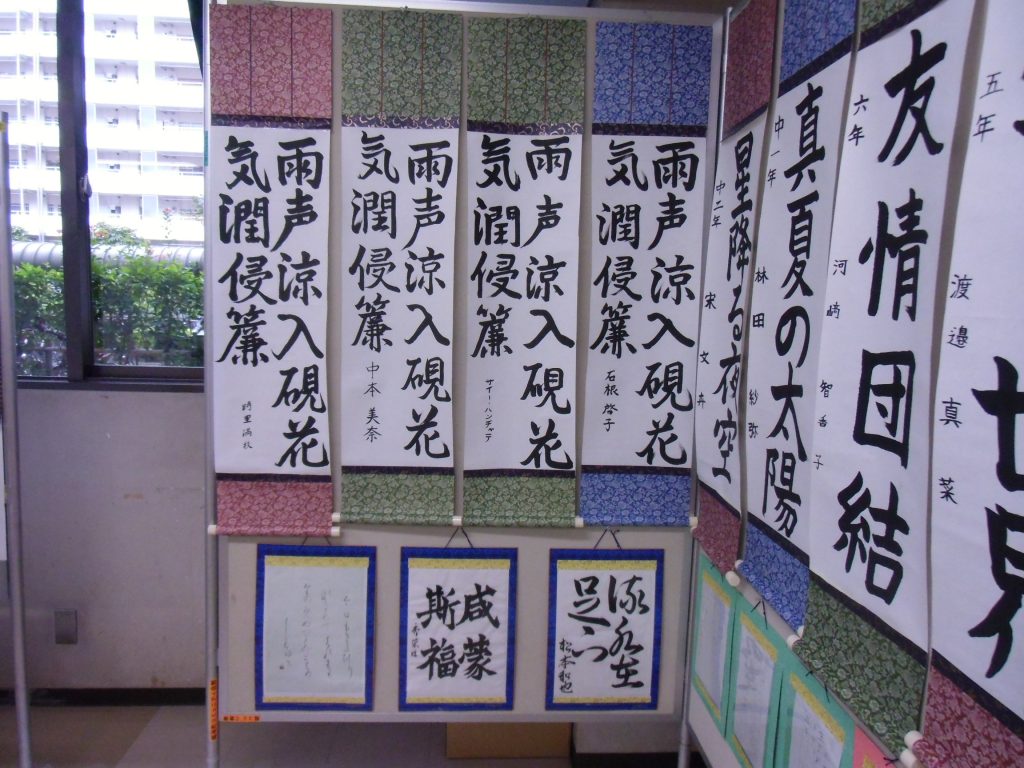 雨声涼入硯花
気潤侵簾
雨声涼入硯花
気潤侵簾
中本 美奈
雨声涼入硯花
気潤侵簾
サイー・ハンチャテ
雨声涼入硯花
気潤侵簾
石根 啓子
咸蒙
斯福
松本和也
星降る夜空
中二年 宋 文卉
真夏の太陽
中一年 林田 紗弥
友情団結
六年 河崎 智香子
五年 渡邉 真菜